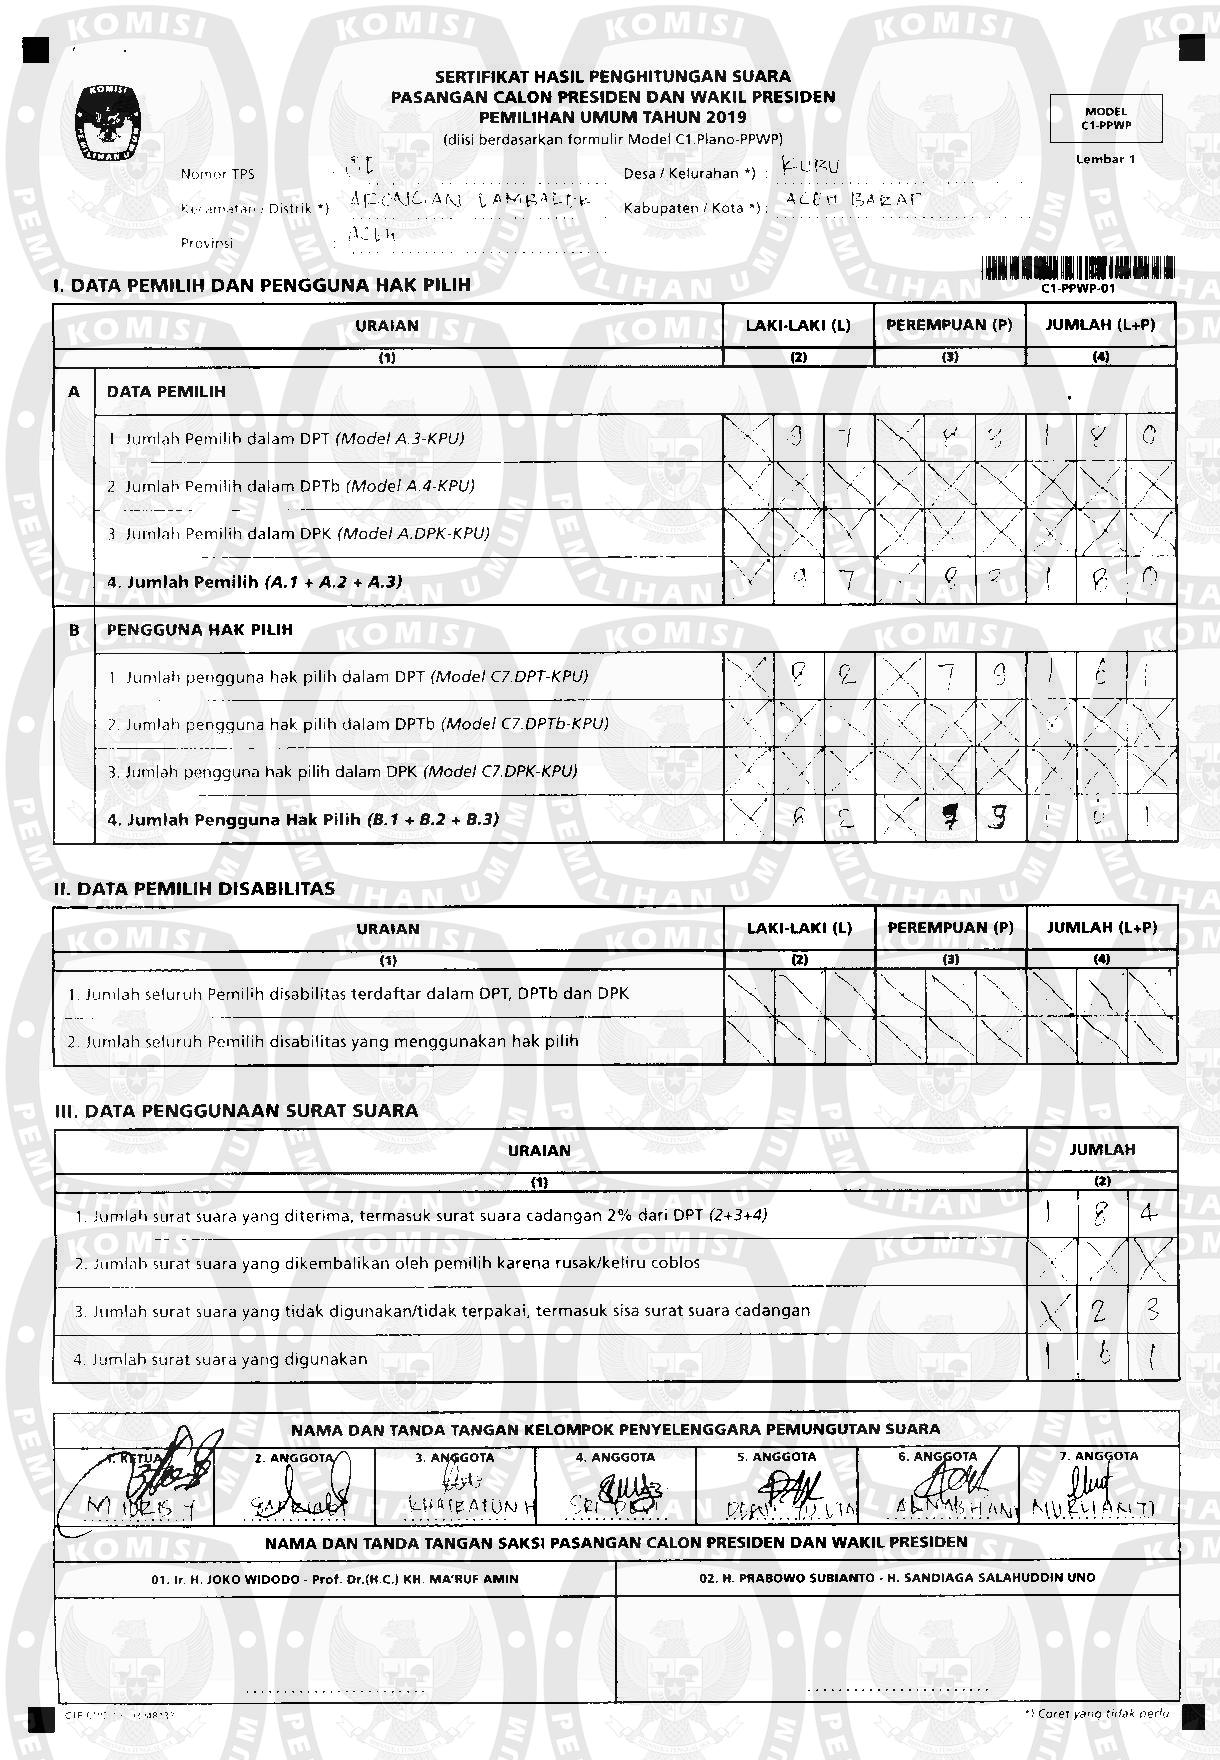 SERTIFIKAT HASIL PENGHITUNGAN SUARA
PASANGAN CALON PRESIDEN DAN WAKIL PRESIDEN
PEMILIHAN UMUM TAHUN 2019
(diisi berdasarkan formulir Model C1.Plano-PPWP)
MODEL
C1-PPWP
Lembar 1
Nomor TPS :
Desa / Kelurahan *) : KUBU
Kecamatan / Distrik *) : ARONGAN LAMBALEK
Kabupaten / Kota *) : ACEH BARAT
Provinsi : ACEH
C1-PPWP-01
I. DATA PEMILIH DAN PENGGUNA HAK PILIH
URAIAN LAKI-LAKI (L) PEREMPUAN (P) JUMLAH (L+P)
(1) (2) (3) (4)
A DATA PEMILIH
1 Jumlah Pemilih dalam DPT (Model A.3-KPU) X 9 7 X 8 3 1 8 0
2 Jumlah Pemilih dalam DPTb (Model A.4-KPU) X X X X X X X X X
3 Jumlah Pemilih dalam DPK (Model A.DPK-KPU) X X X X X X X X X
4. Jumlah Pemilih (A.1 + A.2 + A.3) X 9 7 8 3 1 8 0
B PENGGUNA HAK PILIH
1 Jumlah pengguna hak pilih dalam DPT (Model C7.DPT-KPU) X 8 2 X 7 9 1 6 1
2. Jumlah pengguna hak pilih dalam DPTb (Model C7.DPTb-KPU) X X X X X X X X X
3. Jumlah pengguna hak pilih dalam DPK (Model C7.DPK-KPU) X X X X X X X X X
4. Jumlah Pengguna Hak Pilih (B.1 + B.2 + B.3) X 8 2 X 7 9 1 6 1
II. DATA PEMILIH DISABILITAS
URAIAN LAKI-LAKI (L) PEREMPUAN (P) JUMLAH (L+P)
(1) (2) (3) (4)
1. Jumlah seluruh Pemilih disabilitas terdaftar dalam DPT, DPTb dan DPK
2. Jumlah seluruh Pemilih disabilitas yang menggunakan hak pilih
III. DATA PENGGUNAAN SURAT SUARA
URAIAN JUMLAH
(1) (2)
1. Jumlah surat suara yang diterima, termasuk surat suara cadangan 2% dari DPT (2+3+4) 1 8 4
2. Jumlah surat suara yang dikembalikan oleh pemilih karena rusak/keliru coblos X X X
3. Jumlah surat suara yang tidak digunakan/tidak terpakai, termasuk sisa surat suara cadangan X 2 3
4. Jumlah surat suara yang digunakan 1 6 1
NAMA DAN TANDA TANGAN KELOMPOK PENYELENGGARA PEMUNGUTAN SUARA
1. KETUA 2. ANGGOTA 3. ANGGOTA 4. ANGGOTA 5. ANGGOTA 6. ANGGOTA 7. ANGGOTA
M IDRIS Y KHAIRATUN H NURLIANTI
NAMA DAN TANDA TANGAN SAKSI PASANGAN CALON PRESIDEN DAN WAKIL PRESIDEN
01. Ir. H. JOKO WIDODO - Prof. Dr.(H.C.) KH. MA'RUF AMIN
02. H. PRABOWO SUBIANTO - H. SANDIAGA SALAHUDDIN UNO
*) Coret yang tidak perlu